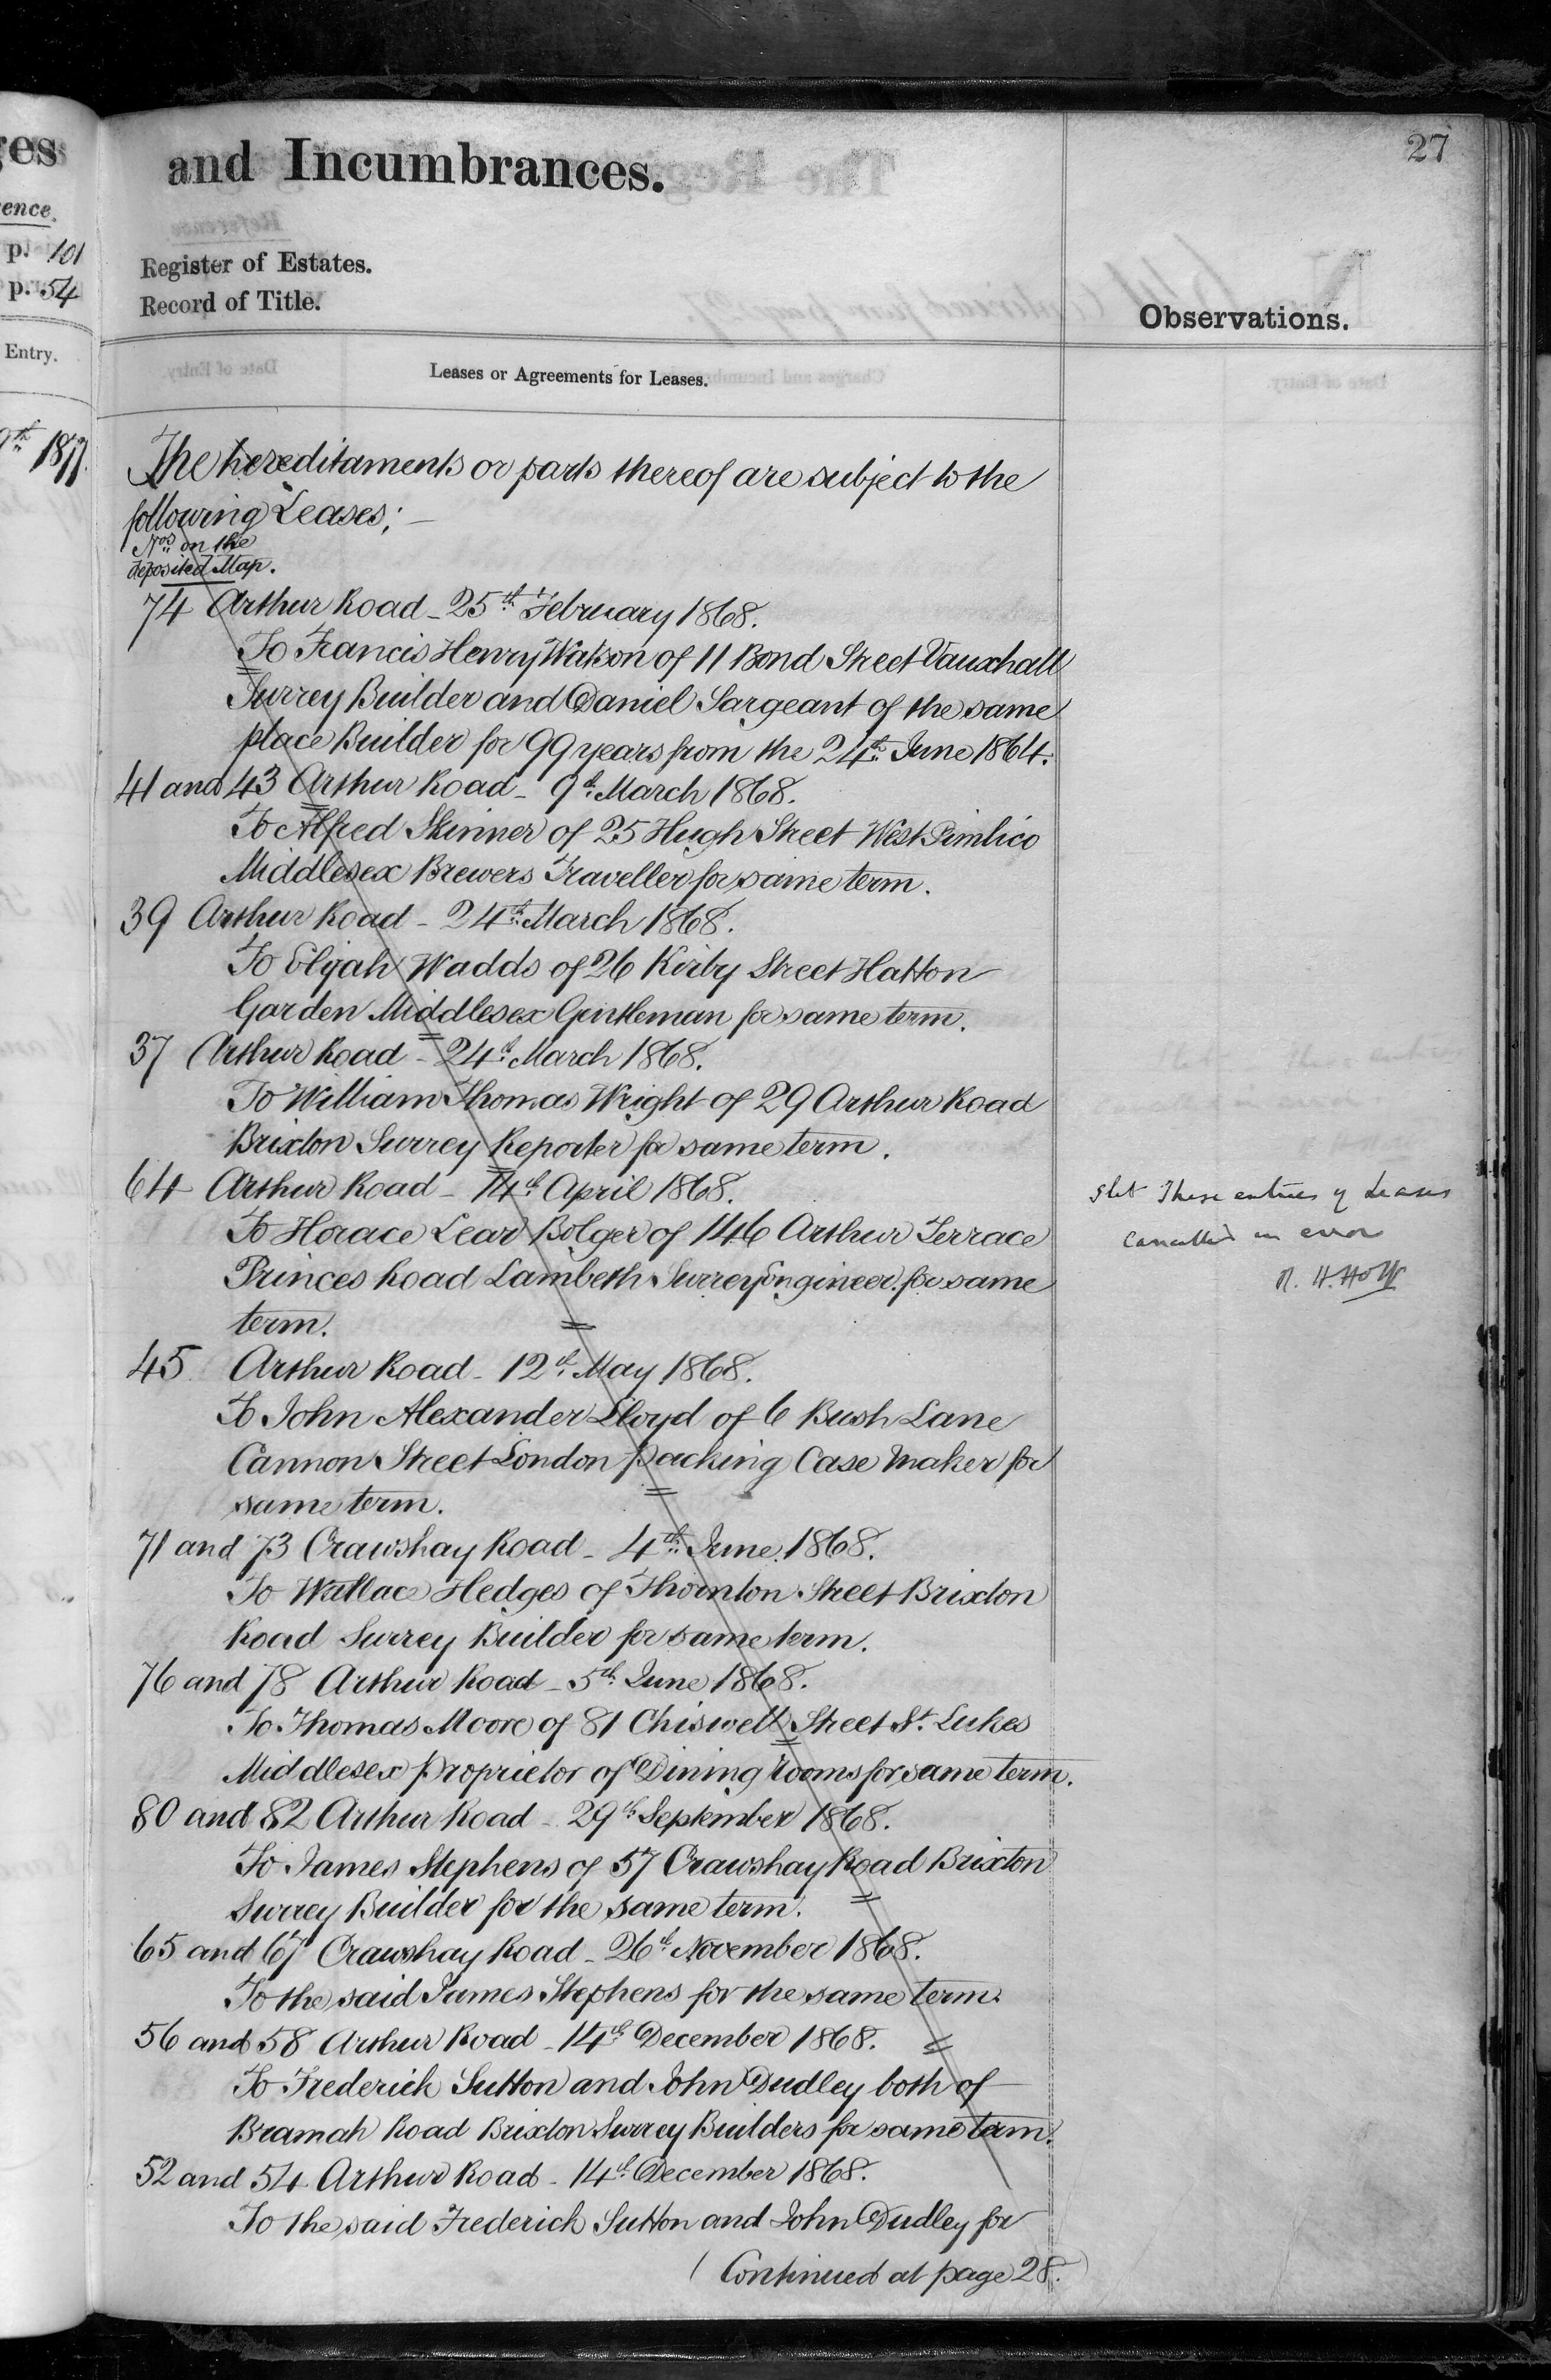 ges
and Incumbrances.
27
ence.
p. 101
p. 54
Register of Estates.
Record of Title.
Observations.
Entry.
Leases or Agreements for Leases.
9th 1877.
The hereditaments or parts thereof are subject to the
following Leases; –
Nos on the
deposited Map.
74 Arthur Road – 25th February 1868.
To Francis Henry Watson of 11 Bond Street Vauxhall
Surrey Builder and Daniel Sargeant of the same
place Builder for 99 years from the 24th June 1864.
41 and 43 Arthur Road – 9th March 1868.
To Alfred Skinner of 25 Hugh Street West Pimlico
Middlesex Brewers Traveller for same term.
39 Arthur Road – 24th March 1868.
To Elijah Wadds of 26 Kirby Street Hatton
Garden Middlesex Gentleman for same term.
37 Arthur Road – 24th March 1868.
To William Thomas Wright of 29 Arthur Road
Brixton Surrey Reporter for same term.
64 Arthur Road – 14th April 1868.
To Horace Lear Bolger of 146 Arthur Terrace
Princes Road Lambeth Surrey Engineer for same
term.
Stet These entries of Leases
Cancelled in error
R. H. Holt
45 Arthur Road – 12th May 1868.
To John Alexander Lloyd of 6 Bush Lane
Cannon Street London packing Case Maker for
same term.
71 and 73 Crawshay Road – 4th June 1868.
To Wallace Hedges of Thornton Street Brixton
Road Surrey Builder for same term.
76 and 78 Arthur Road – 5th June 1868.
To Thomas Moore of 81 Chiswell Street St. Lukes
Middlesex proprietor of Dining rooms for same term.
80 and 82 Arthur Road – 29th September 1868.
To James Stephens of 57 Crawshay Road Brixton
Surrey Builder for the same term.
65 and 67 Crawshay Road – 26th November 1868.
To the said James Stephens for the same term.
56 and 58 Arthur Road – 14th December 1868.
To Frederick Sutton and John Dudley both of
Bramah Road Brixton Surrey Builders for same term.
52 and 54 Arthur Road – 14th December 1868.
To the said Frederick Sutton and John Dudley for
(Continued at page 28.)